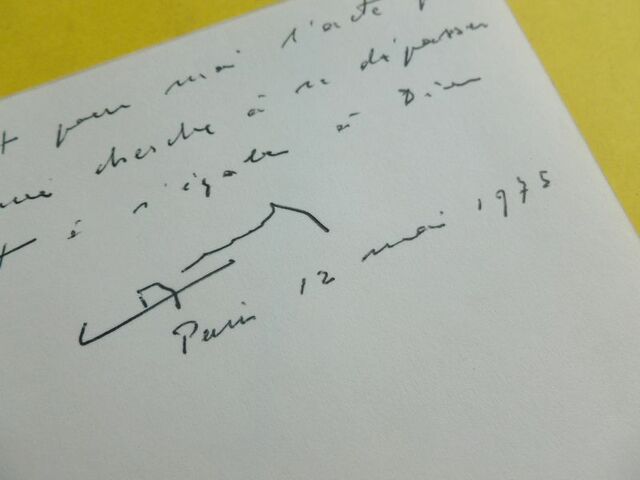 pour moi l'acte
cherche à se dépasser
et à s'égaler à Dieu
Paris 12 mai 1975